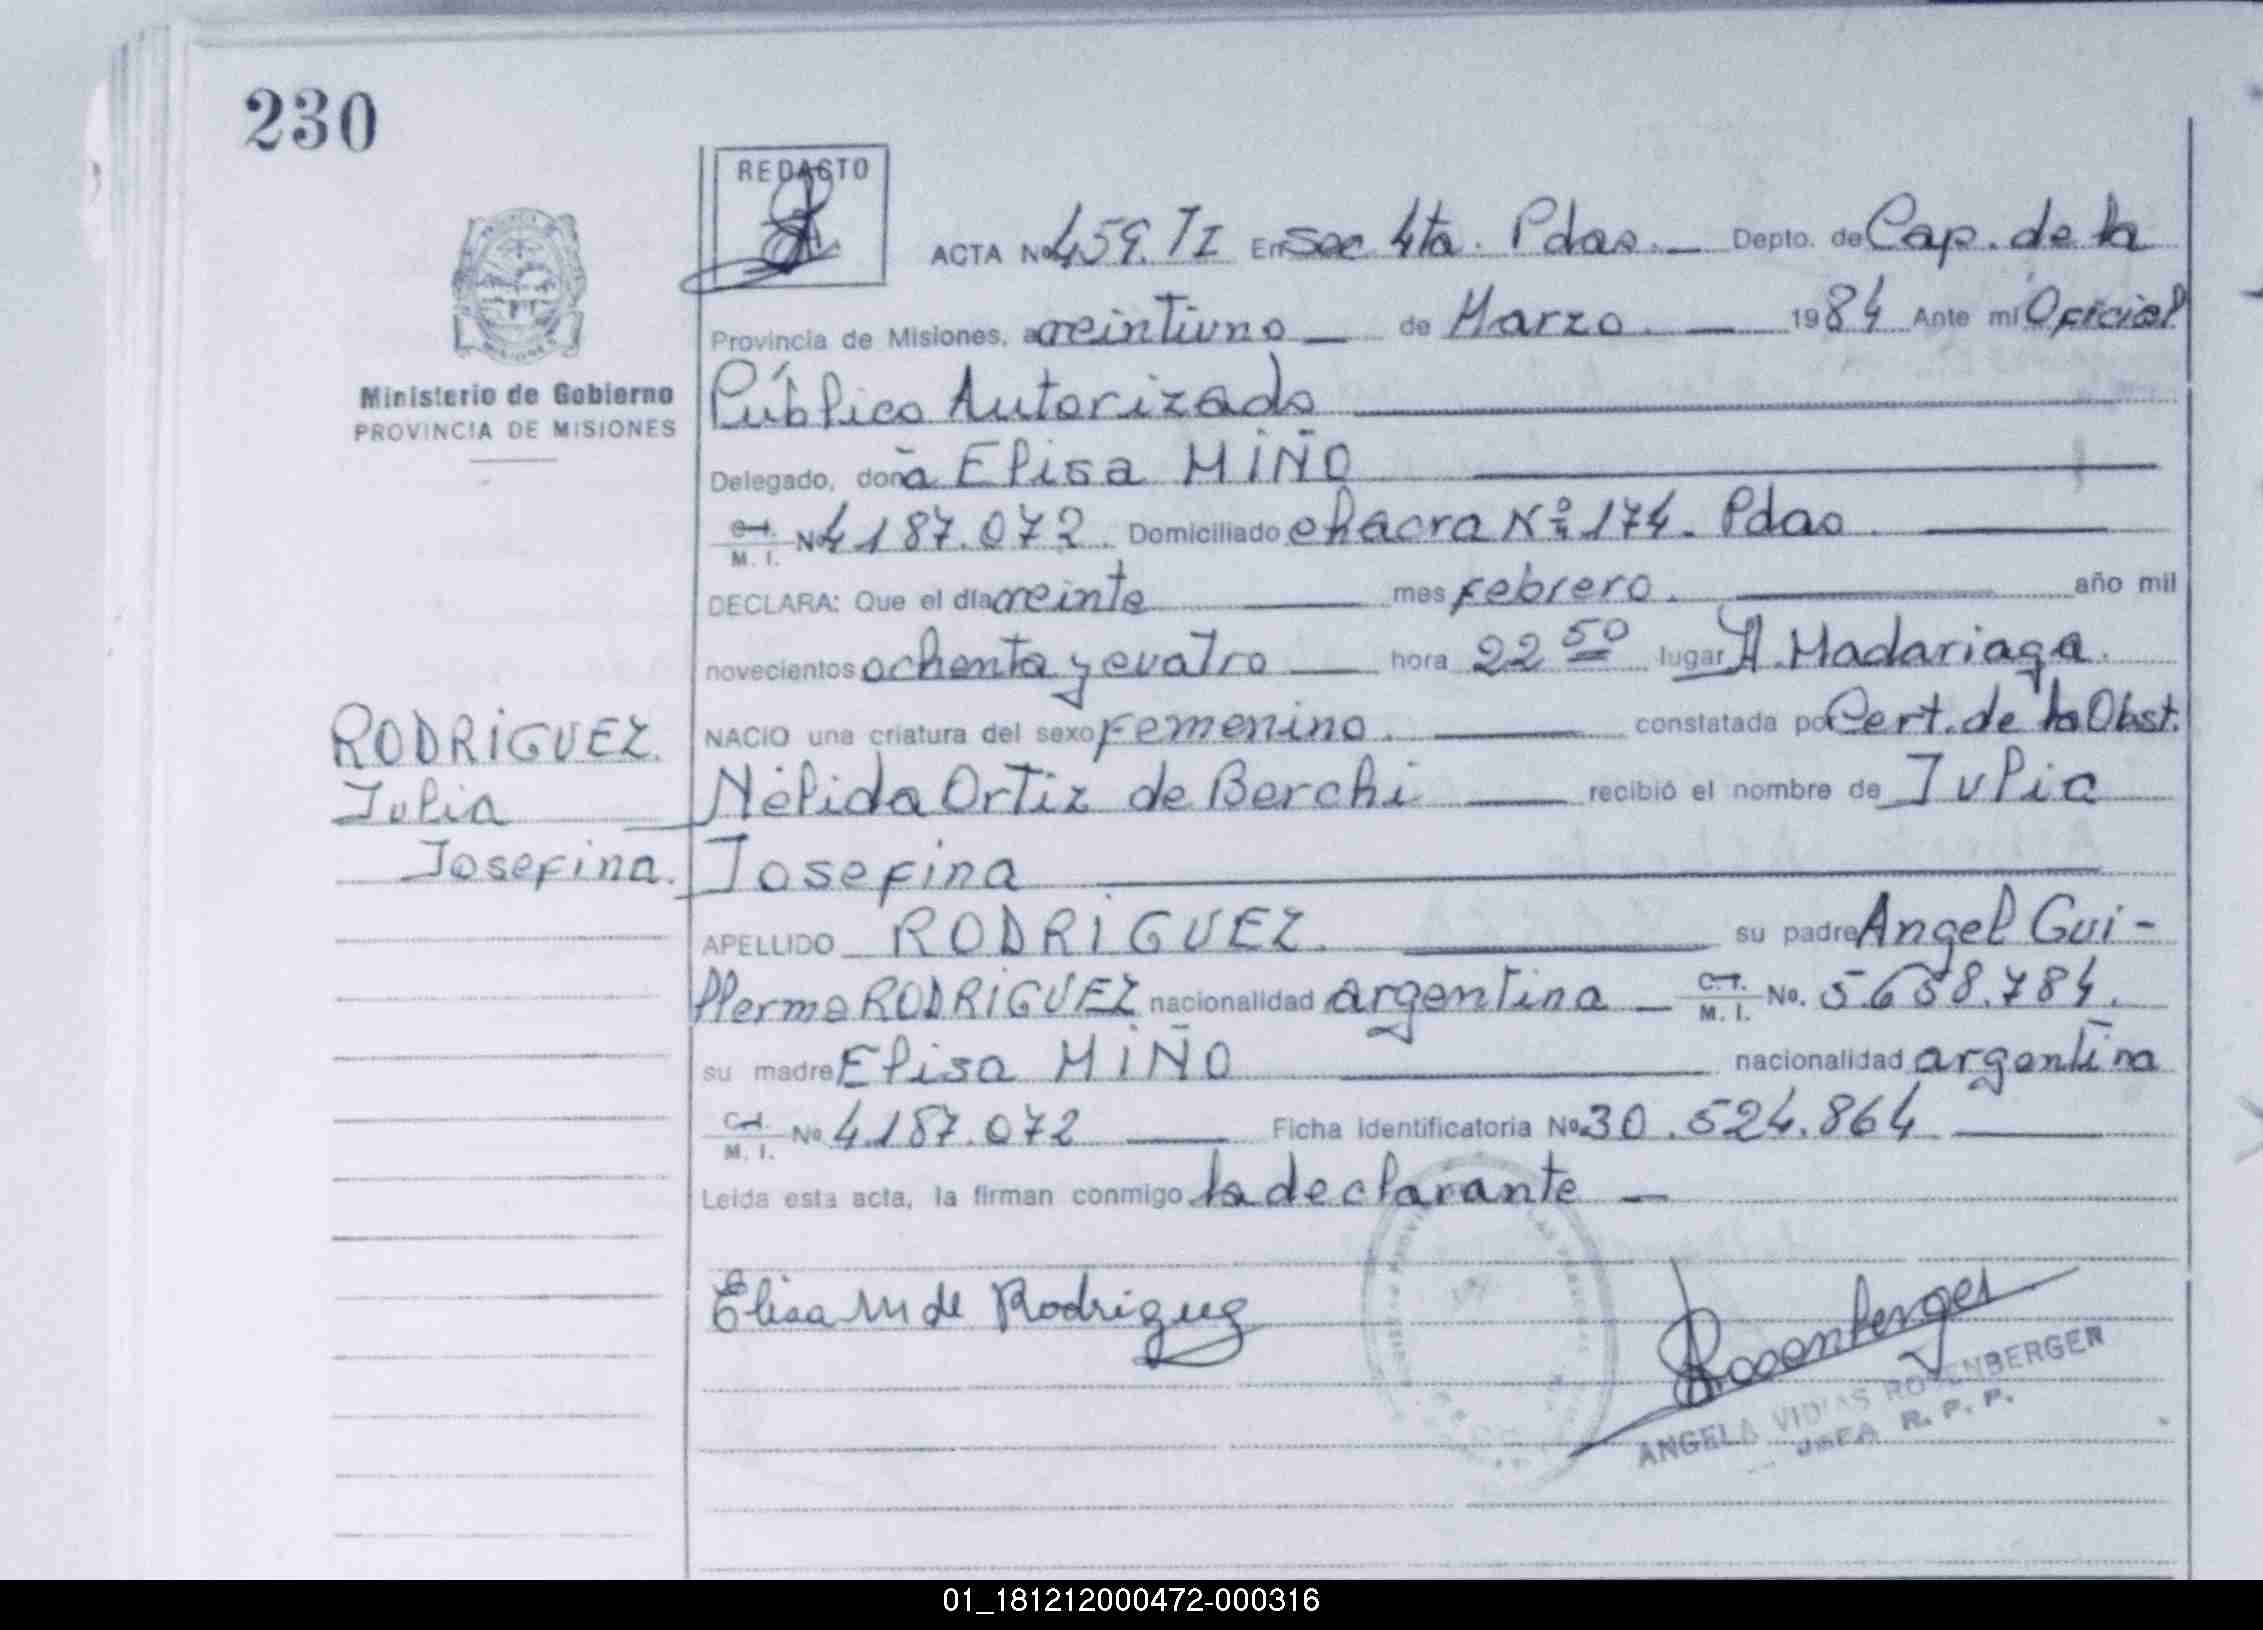 230
REDACTO
ACTA No 459. TI En Sec 4ta. Pdas. Depto. de Cap. de la
Provincia de Misiones, a veintiuno de Marzo. 1984 Ante mi Oficial
Público Autorizado
Ministerio de Gobierno
PROVINCIA DE MISIONES
Delegado, doña Elisa MIÑO
C.I. M. I. No 4187.072. Domiciliado chacra Nº 174. Pdas
DECLARA: Que el día veinte mes Febrero. año mil
novecientos ochenta y cuatro hora 22 50 lugar H. Madariaga.
NACIO una criatura del sexo Femenino. constatada por Cert. de la Obst.
Nélida Ortiz de Berchi recibió el nombre de Julia
Josefina
RODRIGUEZ.
Julia
Josefina.
APELLIDO RODRIGUEZ. su padre Angel Gui-
llermo RODRIGUEZ nacionalidad argentina C.I. M. I. No. 5.658.784.
su madre Elisa MIÑO nacionalidad argentina
C.I. M. I. No 4.187.072 Ficha Identificatoria No 30.524.864
Leída esta acta, la firman conmigo la declarante
Elisa M de Rodriguez
Rosenberger
ANGELA VIDIAS ROSENBERGER
JEFA R. P. P.
01_181212000472-000316